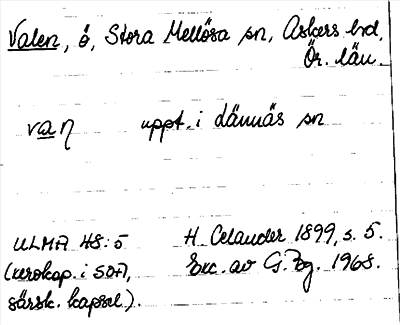 Valen, ö, Stora Mellösa sn, Askers hd,
Ör. län.
vaŋ uppt. i Lännäs sn
ULMA 48:5 H. Celander 1899, s. 5.
(xerokop. i SOA, Exc. av G. Bg. 1968.
särsk. kapsel).